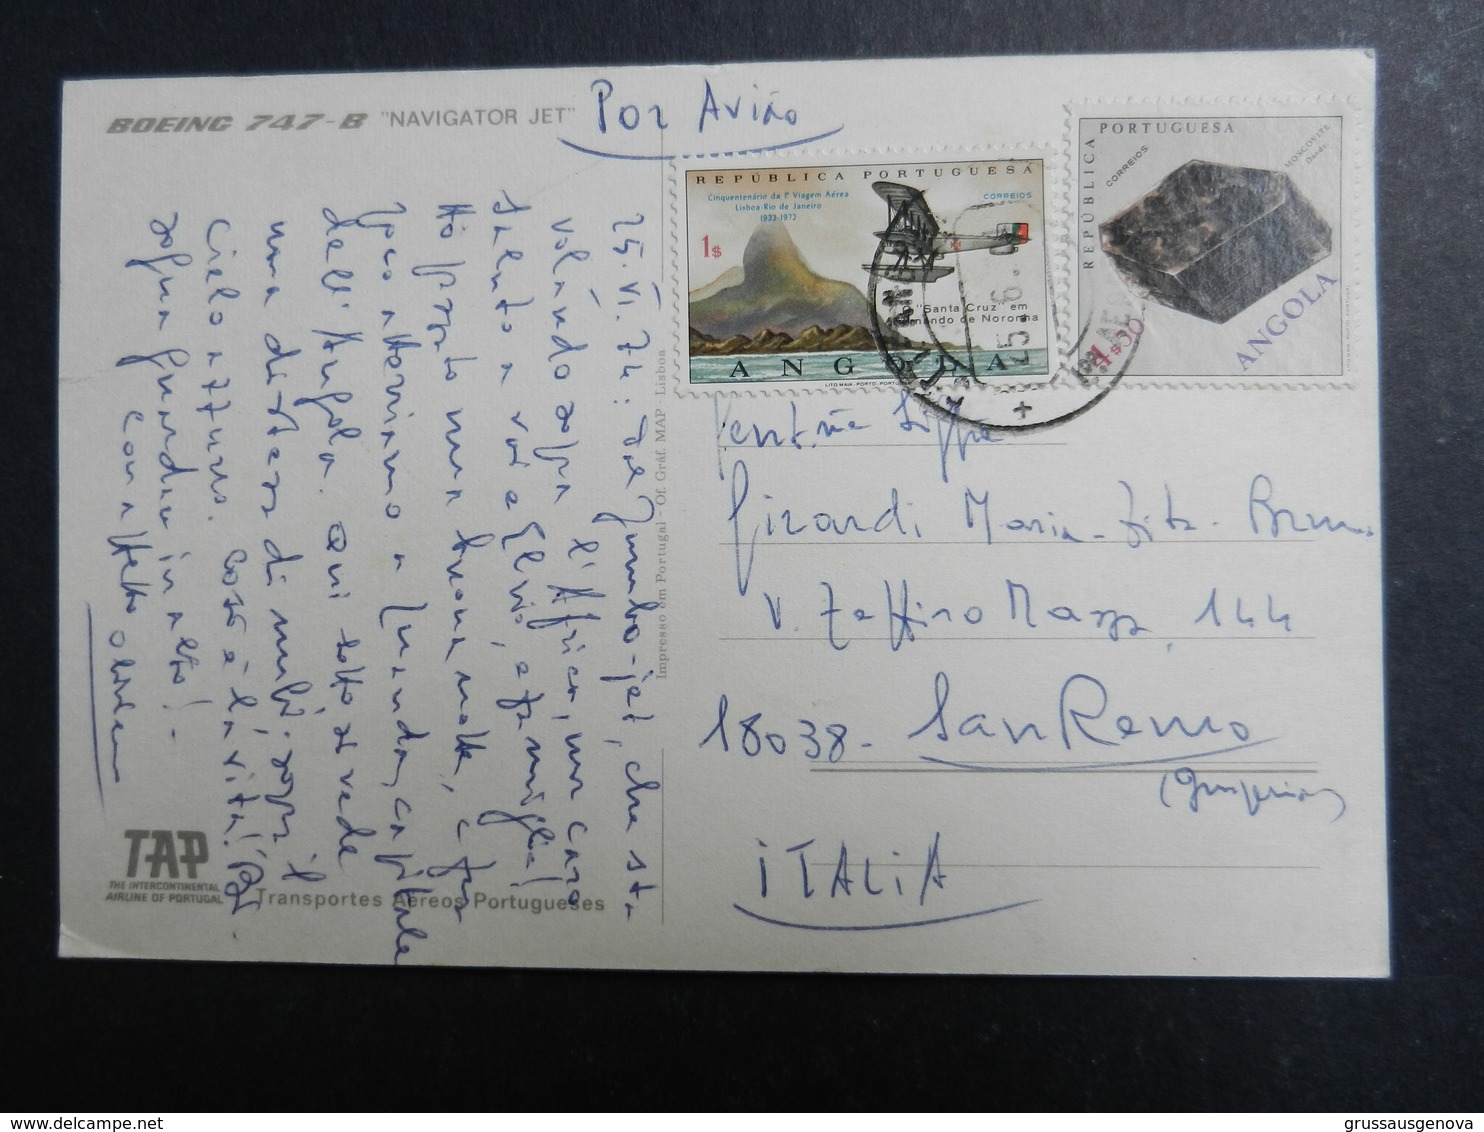 BOEING 747-B "NAVIGATOR JET"
Por Avião
REPÚBLICA PORTUGUESA
Cinquentenário da 1ª Viagem Aérea
Lisboa-Rio de Janeiro
1922-1972
CORREIOS
1$
"Santa Cruz" em
Fernando de Noronha
ANGOLA
LITO MAIA-PORTO-PORTUGAL
REPÚBLICA PORTUGUESA
CORREIOS
MOSCOVITE
Dundo
1$50
ANGOLA
25.6.
25.VI.74: dal Jumbo-jet, che sta
volando sopra l'Africa, un caro
saluto a voi e Elvio, e famiglia!
Ho passato una buona notte, e fra
poco atterriamo a Luanda, capitale
dell'Angola. Qui sotto si vede
una distesa di nubi, sopra il
cielo azzurro. Così è la vita!
sopra guardare in alto! -
con affetto
Impresso em Portugal - Of. Gráf. MAP - Lisboa
Gent.ma
Girardi Maria-Rita-Bruna
V. Zeffiro Massa, 144
18038- San Remo
(Imperia)
ITALIA
TAP
THE INTERCONTINENTAL
AIRLINE OF PORTUGAL
Transportes Aéreos Portugueses
grussausgenova
delcampe.net